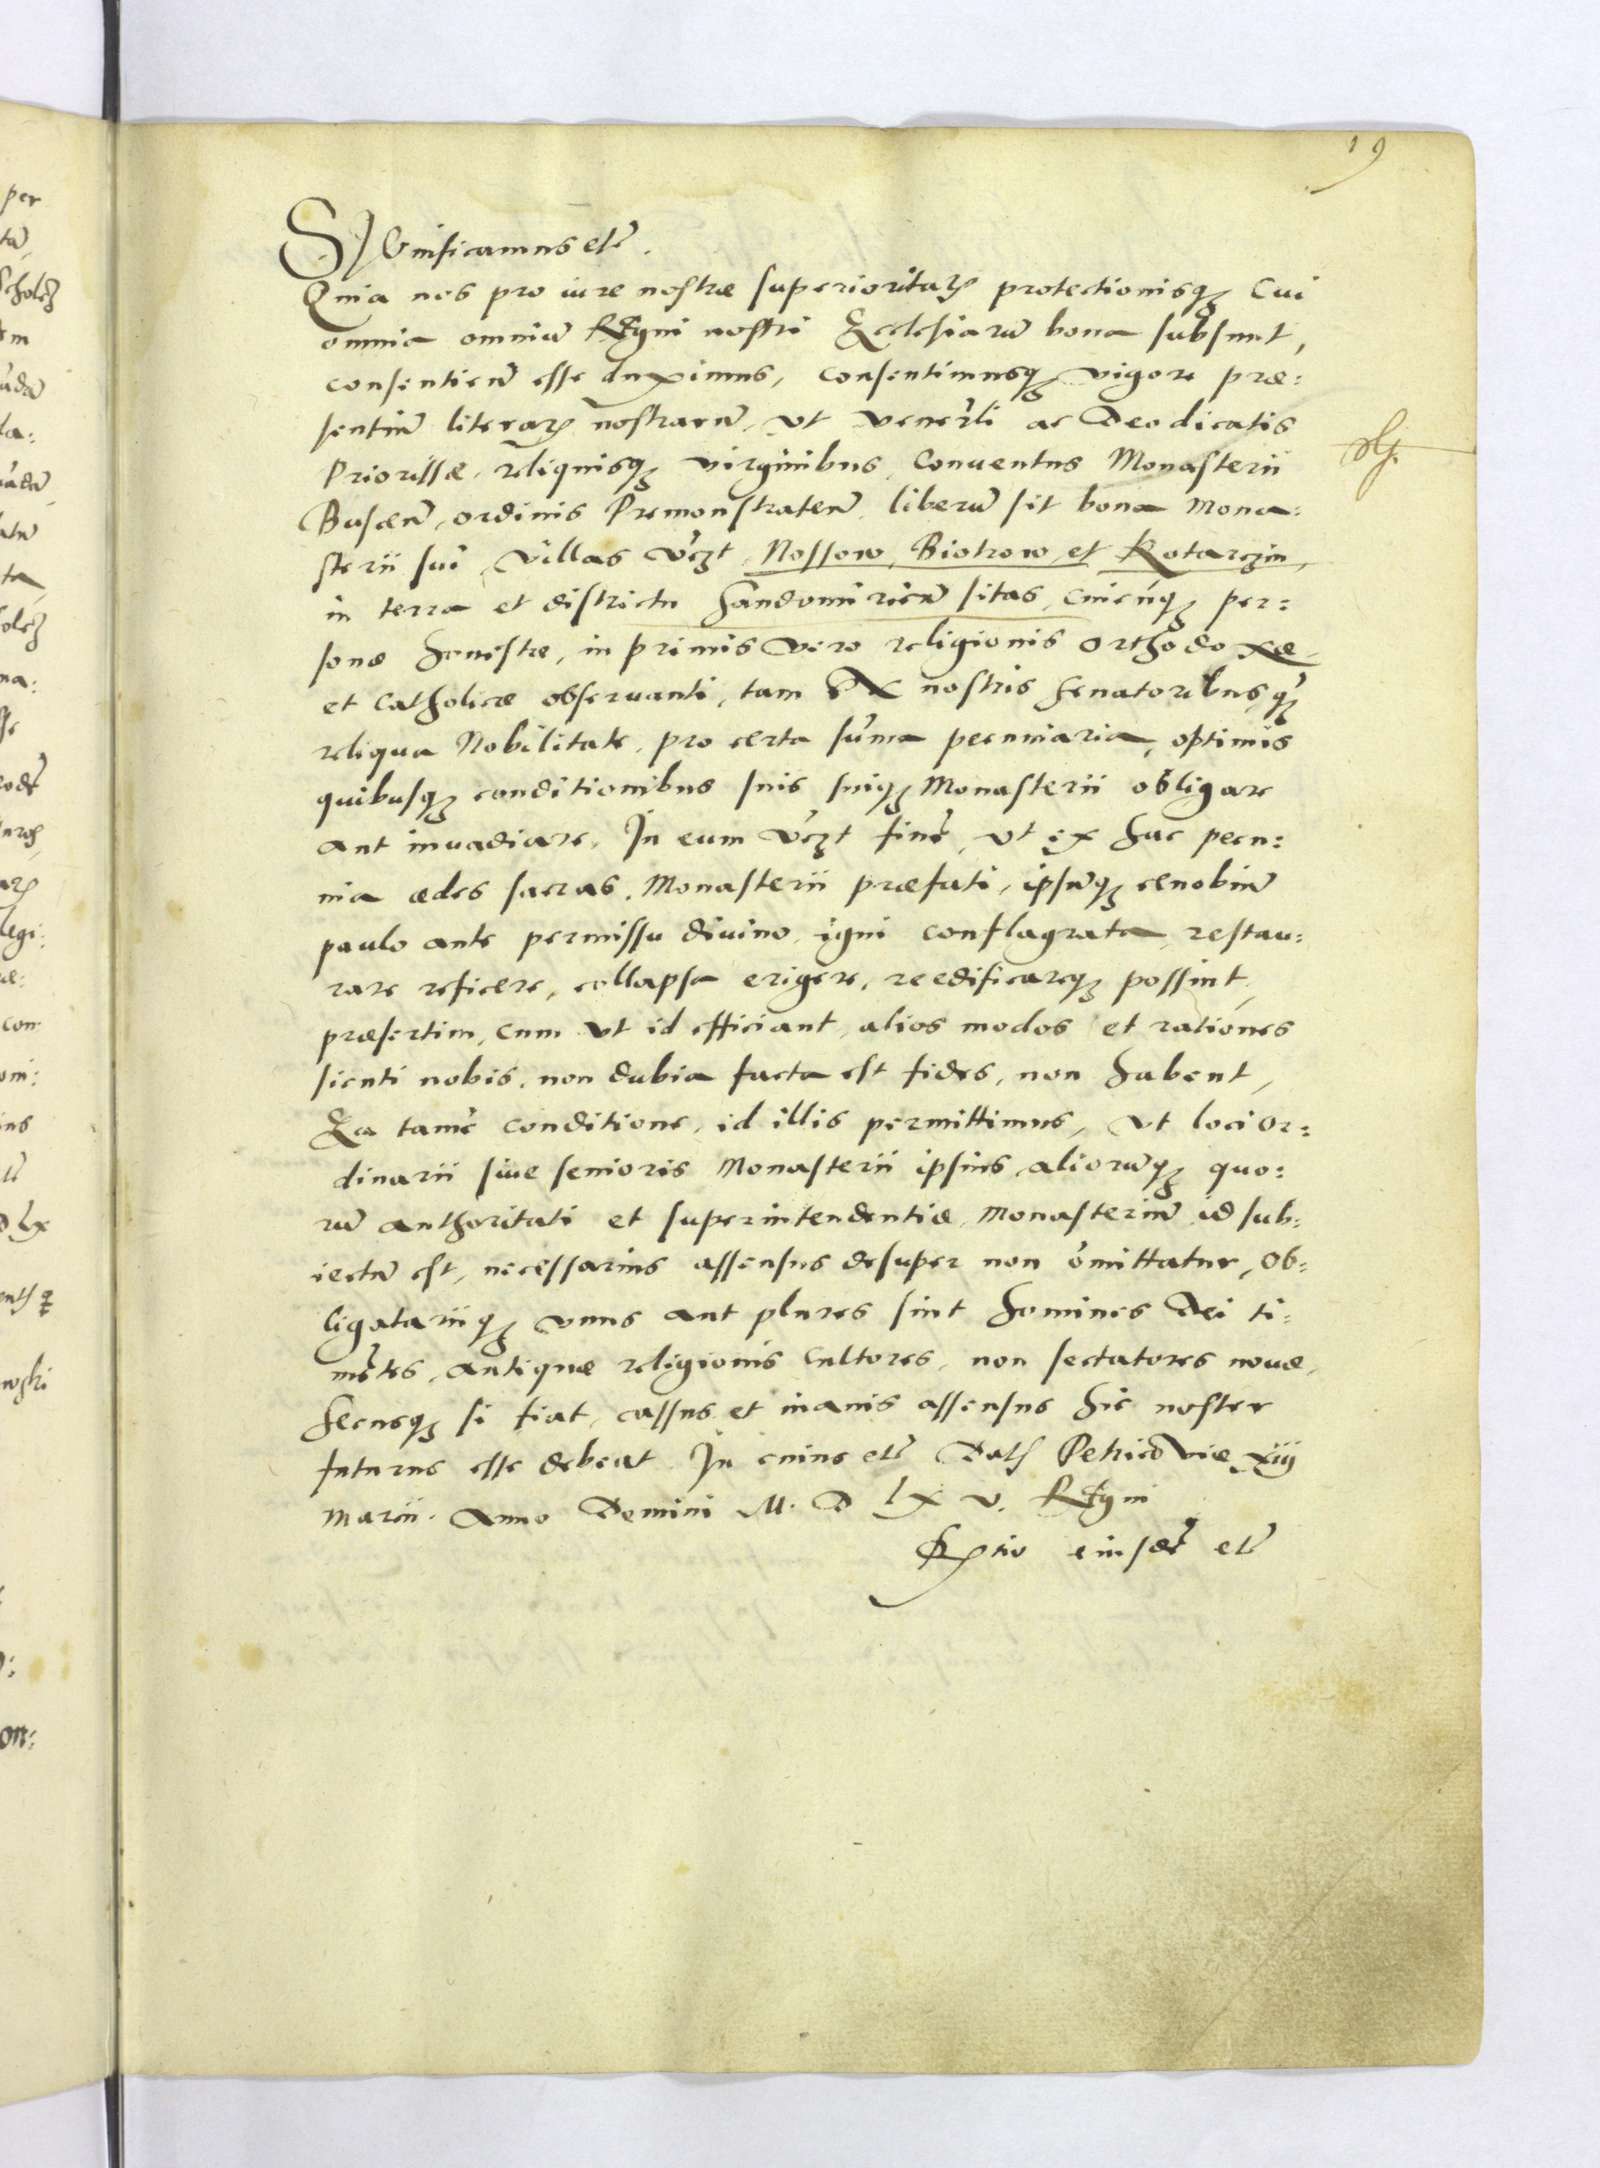 19
Significamus etc̃.
Quia nos pro iure nostræ superioritatꝭ protectionisqꝫ cui
omnia omniũ Regni nostri Ecclesiarũ bona subsunt,
consentiẽn esse duximus, consentimusqꝫ vigore præ:
sentiũ literarꝭ nostrarũ, vt veneƞli ac Deodicatis
Priorissæ, reliquisqꝫ virginibus Conuentus Monasterii
Buscen̄, ordinis Premonstraten̄, liberũ sit bona Mona:
sterii sui, villas vczt, Nossow, Biotrow, et Kotarczin,
in terra et districtu Sandomirien̄ sitas, cuicũqꝫ per:
sonæ honestæ, in primis vero religionis orthodoxæ
et catholicæ obseruanti, tam ex nostris senatoribus, qꝫ̃
reliqua Nobilitate, pro certa sũma pecuniaria, optimis
quibusqꝫ conditionibus suis suiqꝫ Monasterii obligare
aut inuadiare. In eum vczt finẽ, vt ex hac pecu:
nia ædes sacras, Monasterii præfati, ipsũqꝫ cenobiũ
paulo ante permissu diuino igni conflagrata, restau:
rare reficere, collapsa erigere, reedificareqꝫ possint,
præsertim, cum vt id efficiant, alios modos et rationes
sicuti nobis, non dubia facta est fides, non habent,
Ea tamẽ conditione, id illis permittimus, vt loci or:
dinarii siue senioris Monasterii ipsius, aliorũqꝫ quo:
rũ authoritati et superintendentiæ, Monasteriũ id sub:
iectũ est, necessarius assensus desuper non omittatur, ob:
ligatariiqꝫ vnus aut plures sint homines Dei ti:
mẽtes, antiquæ religionis cultores, non sectatores nouæ,
Secusqꝫ si fiat, cassus et inanis assensus hic noster
futurus esse debeat. In cuius etc̃ Datꝭ Petricouiæ xiij
Marcii. Anno Domini M. D lx v. Regni
Rꝭtio eiusdẽ etc̃